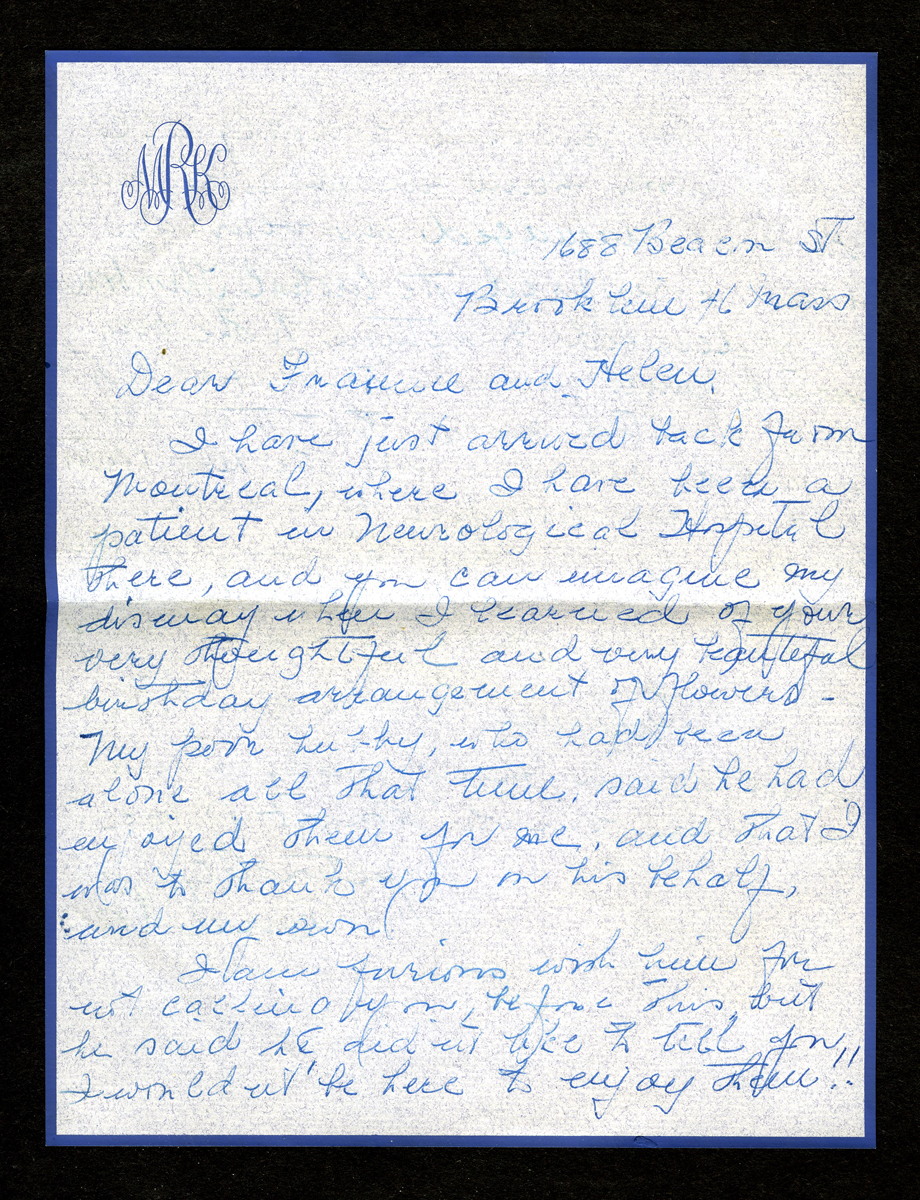 MRK
1688 Beacon ST
Brookline 46 Mass
Dear Frannie and Helen,
I have just arrived back from
Montreal, where I have been a
patient in Neurological Hospital
there, and you can imagine my
dismay when I learned of your
very thoughtful and very beautiful
birthday arrangement of flowers -
My poor hubby, who had been
alone all that time, said he had
enjoyed them for me, and that I
was to thank you on his behalf,
and my own
I am furious with him for
not calling you, before this, but
he said he didn't like to tell you
I wouldn't be here to enjoy them!!